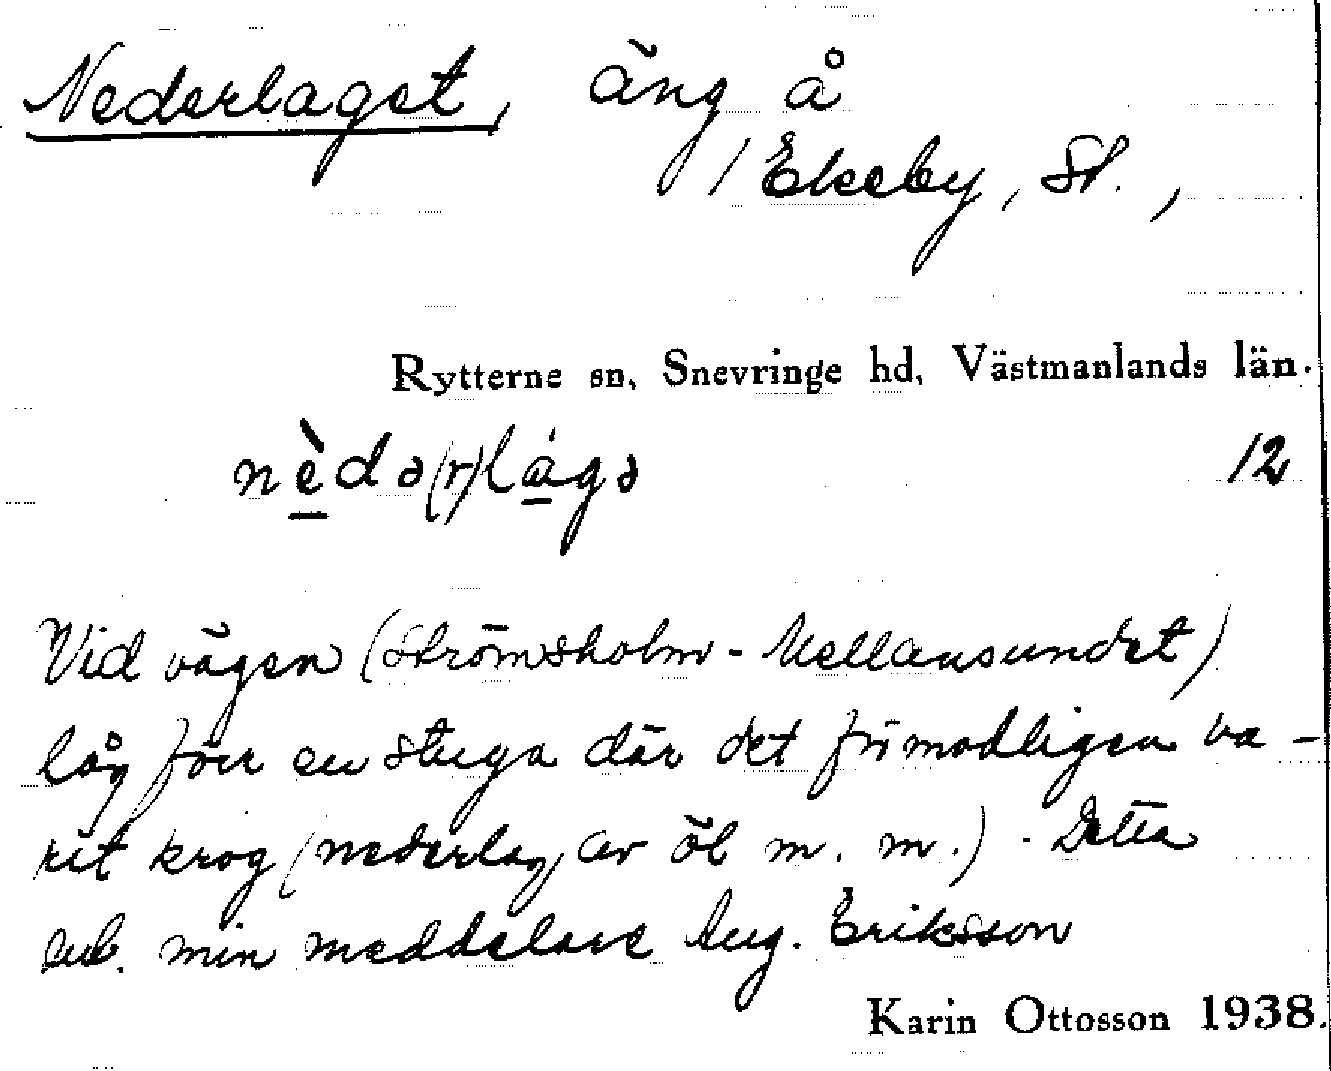 Nederlaget, äng å
/Ekeby, St.,
Rytterne sn, Snevringe hd, Västmanlands län.
nèdə(r)lágə
12
Vid vägen (Strömsholm - Mellansundet)
låg förr en stuga där det förmodligen va-
rit krog (nederlag av öl m. m.). Detta
enl. min meddelare Aug. Eriksson
Karin Ottosson 1938.